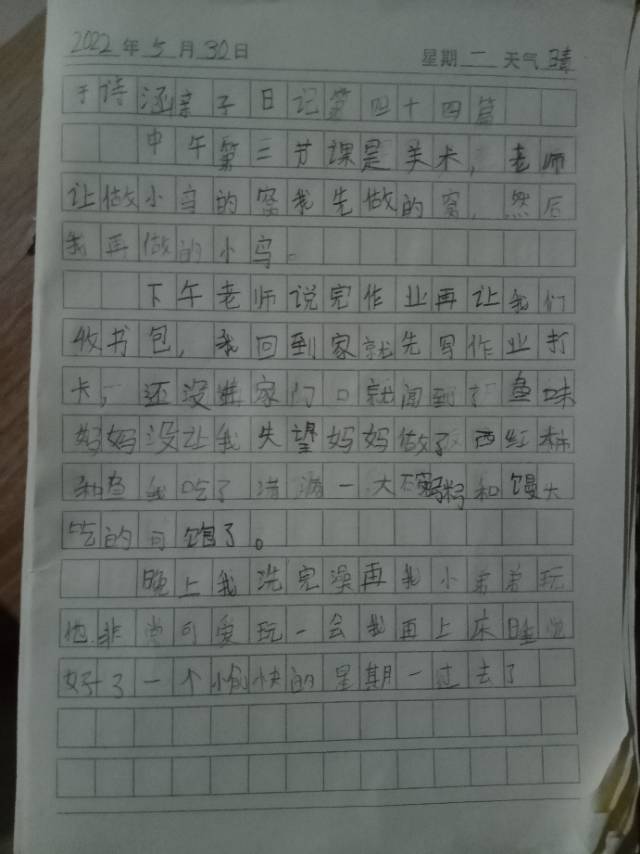 2022年5月30日 星期一 天气 晴
于诗涵亲子日记第四十四篇
中午第三节课是美术，老师
让做小鸟的窝我先做的窝，然后
我再做的小鸟。
下午老师说完作业再让我们
收书包，我回到家就先写作业打
卡，还没进家门口就闻到了鱼味
妈妈没让我失望妈妈做了西红柿
和鱼我吃了满满一大碗和馒大
吃的可饱了。
晚上我洗完澡再我小弟弟玩
他非常可爱玩一会我再上床睡觉
好了一个愉快的星期一过去了